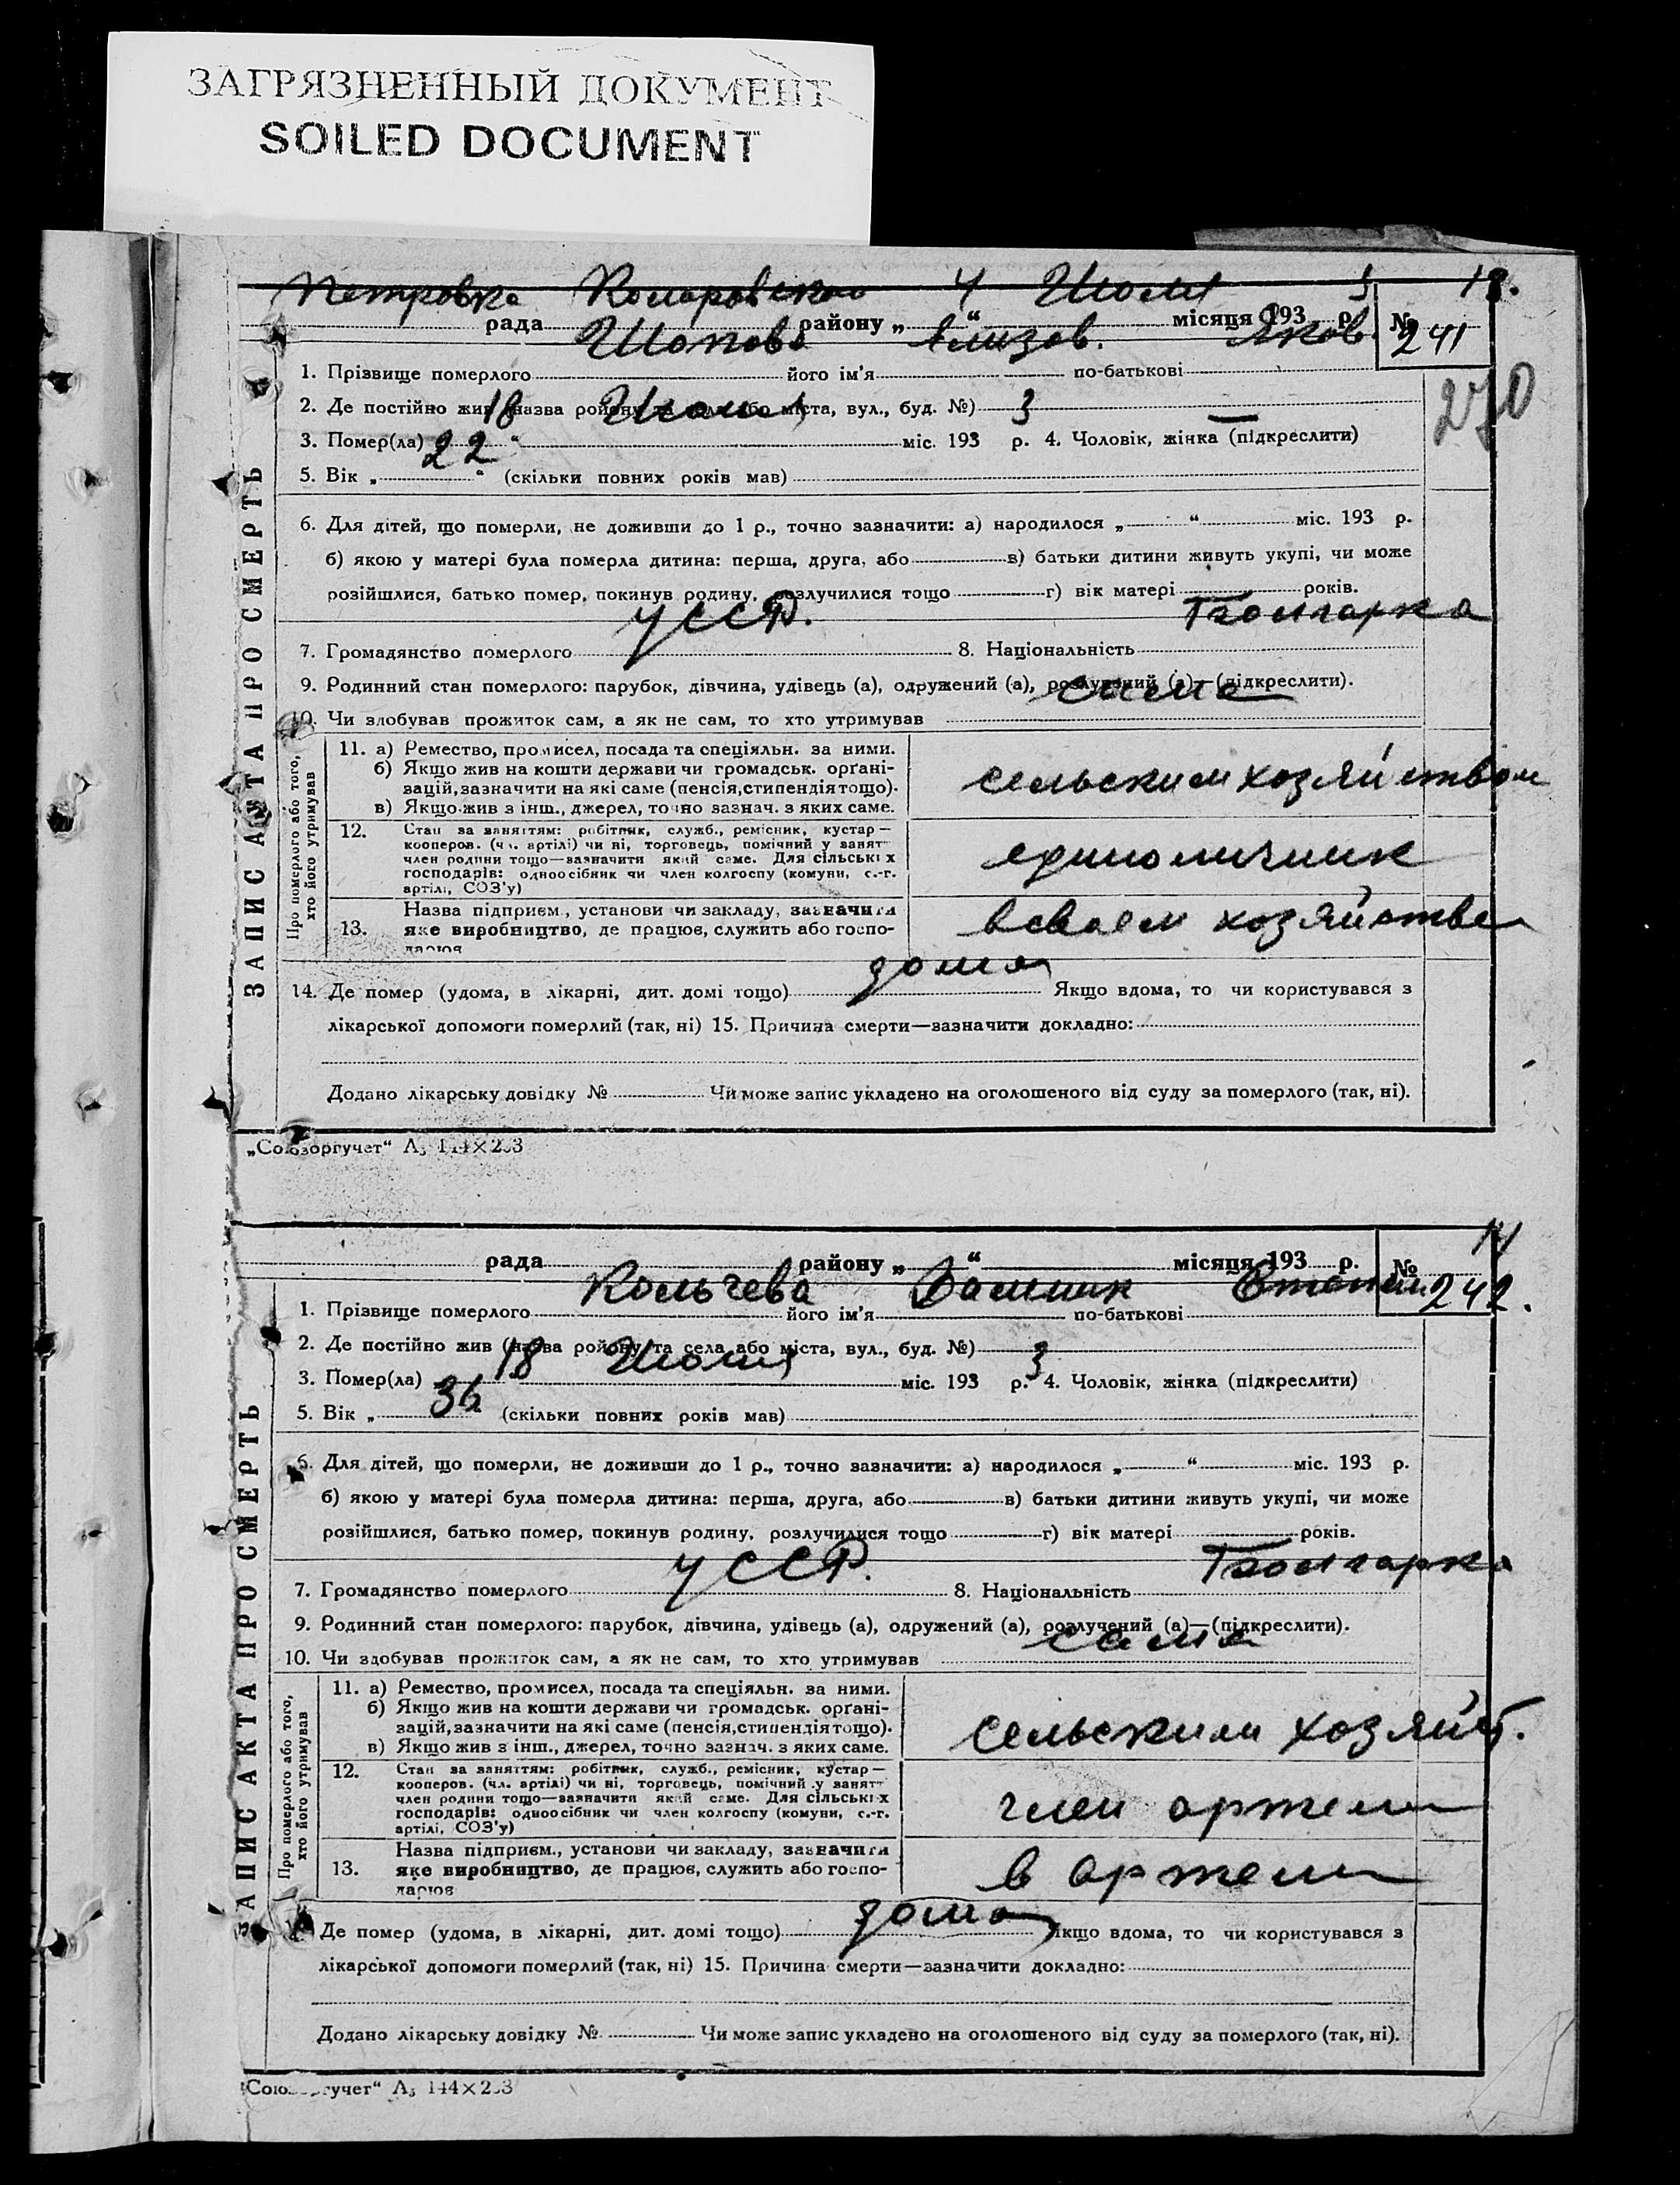 ЗАГРЯЗНЕННЫЙ ДОКУМЕНТ
SOILED DOCUMENT
Петровка Комаровского 4 Июля 3 13.
рада району „ “ місяця 193 р. № 241
Попова Яков.
1. Прізвище померлого його ім'я по-батькові
270
2. Де постійно жив (назва району та села або міста, вул., буд. №)
18 Июля 3
3. Помер(ла) „ “ міс. 193 р. 4. Чоловік, жінка (підкреслити)
22
5. Вік „ “ (скільки повних років мав)
6. Для дітей, що померли, не доживши до 1 р., точно зазначити: а) народилося „ “ міс. 193 р.
б) якою у матері була померла дитина: перша, друга, або в) батьки дитини живуть укупі, чи може
розійшлися, батько помер, покинув родину, розлучилися тощо г) вік матері років.
УССР. Болгарка
7. Громадянство померлого 8. Національність
9. Родинний стан померлого: парубок, дівчина, удівець (а), одружений (а), розлучений (а)—(підкреслити).
сама
10. Чи здобував прожиток сам, а як не сам, то хто утримував
ЗАПИС АКТА ПРО СМЕРТЬ
Про померлого або того, хто його утримував
11. а) Ремество, промисел, посада та спеціяльн. за ними.
б) Якщо жив на кошти держави чи громадськ. органі-
зацій, зазначити на які саме (пенсія, стипендія тощо).
в) Якщо жив з інш., джерел, точно зазнач. з яких саме.
сельским хозяйством
12. Стан за заняттям: робітник, служб., ремісник, кустар—
кооперов. (чл. артілі) чи ні, торговець, помічний у занят
член родини тощо—зазначити який саме. Для сільських
господарів: одноосібник чи член колгоспу (комуни, с.-г.
артілі, СОЗ'у)
единоличник
Назва підприєм., установи чи закладу, зазначити
13. яке виробництво, де працює, служить або госпо-
дарює
в своем хозяйстве
дома
14. Де помер (удома, в лікарні, дит. домі тощо) Якщо вдома, то чи користувався з
лікарської допомоги померлий (так, ні) 15. Причина смерти—зазначити докладно:
Додано лікарську довідку № Чи може запис укладено на оголошеного від суду за померлого (так, ні).
„Союзоргучет“ А₅ 144×203
14
рада району „ “ місяця 193 р. № 242.
Кольчева Степан
1. Прізвище померлого його ім'я по-батькові
2. Де постійно жив (назва району та села або міста, вул., буд. №)
18 Июля 3
3. Помер(ла) міс. 193 р. 4. Чоловік, жінка (підкреслити)
36
5. Вік „ (скільки повних років мав)
6. Для дітей, що померли, не доживши до 1 р., точно зазначити: а) народилося „ “ міс. 193 р.
б) якою у матері була померла дитина: перша, друга, або в) батьки дитини живуть укупі, чи може
розійшлися, батько помер, покинув родину, розлучилися тощо г) вік матері років.
УССР. Болгарка
7. Громадянство померлого 8. Національність
9. Родинний стан померлого: парубок, дівчина, удівець (а), одружений (а), розлучений (а)—(підкреслити).
сама
10. Чи здобував прожиток сам, а як не сам, то хто утримував
ЗАПИС АКТА ПРО СМЕРТЬ
Про померлого або того, хто його утримував
11. а) Ремество, промисел, посада та спеціяльн. за ними.
б) Якщо жив на кошти держави чи громадськ. органі-
зацій, зазначити на які саме (пенсія, стипендія тощо).
в) Якщо жив з інш., джерел, точно зазнач. з яких саме.
сельским хозяйст.
12. Стан за заняттям: робітник, служб., ремісник, кустар—
кооперов. (чл. артілі) чи ні, торговець, помічний у занят
член родини тощо—зазначити який саме. Для сільських
господарів: одноосібник чи член колгоспу (комуни, с.-г.
артілі, СОЗ'у)
член артели
Назва підприєм., установи чи закладу, зазначити
13. яке виробництво, де працює, служить або госпо-
дарює
в артели
дома
Де помер (удома, в лікарні, дит. домі тощо) Якщо вдома, то чи користувався з
лікарської допомоги померлий (так, ні) 15. Причина смерти—зазначити докладно:
Додано лікарську довідку № Чи може запис укладено на оголошеного від суду за померлого (так, ні).
„Союзоргучет“ А₅ 144×203